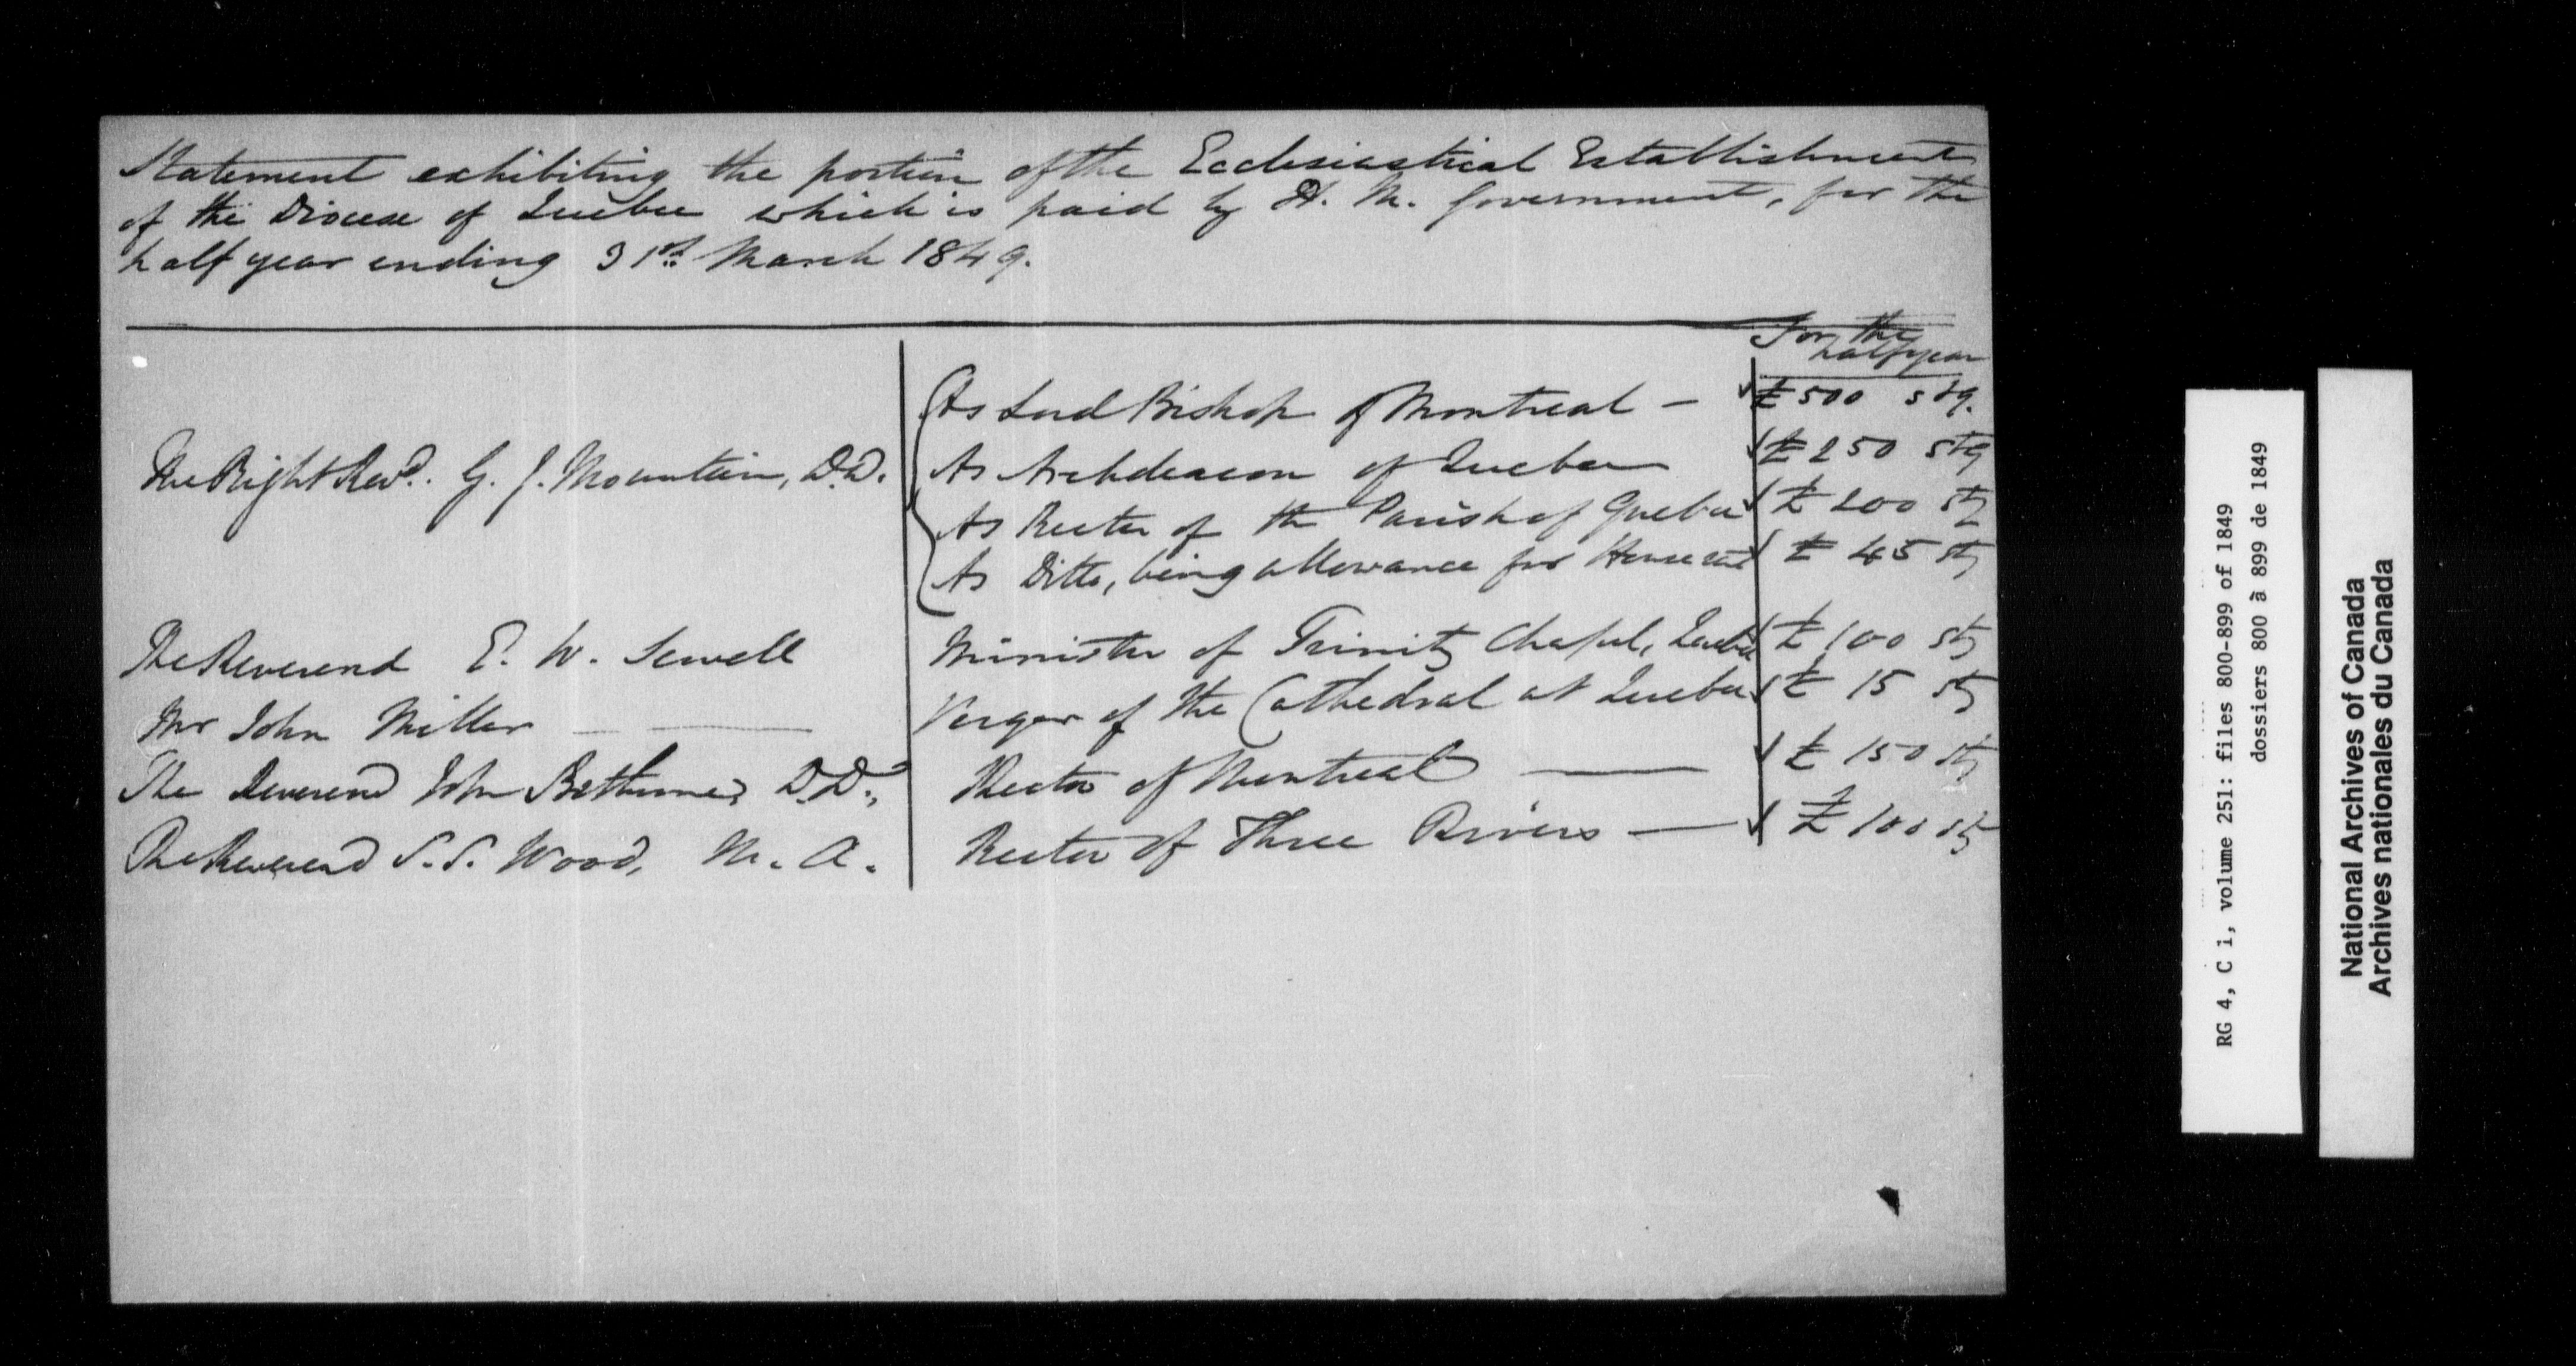 Statement exhibiting the portion of the Ecclesiastical Establishment
of the Diocese of Quebec which is paid by H. M. Government, for the
half year ending 31st March 1849.
For the
half year
The Right Revd. G. J. Mountain, D.D.
As Lord Bishop of Montreal — £500 stg.
As Archdeacon of Quebec £250 stg
As Rector of the Parish of Quebec £200 stg
As Ditto, being allowance for House rent £45 stg
The Reverend E. W. Sewell Minister of Trinity Chapel, Quebec £100 stg
Mr John Miller — Verger of the Cathedral at Quebec £15 stg
The Reverend John Bethune, D.D., Rector of Montreal — £150 stg
The Reverend S. S. Wood, M. A. Rector of Three Rivers — £100 stg
RG 4, C 1, volume 251: files 800-899 of 1849
dossiers 800 à 899 de 1849
National Archives of Canada
Archives nationales du Canada